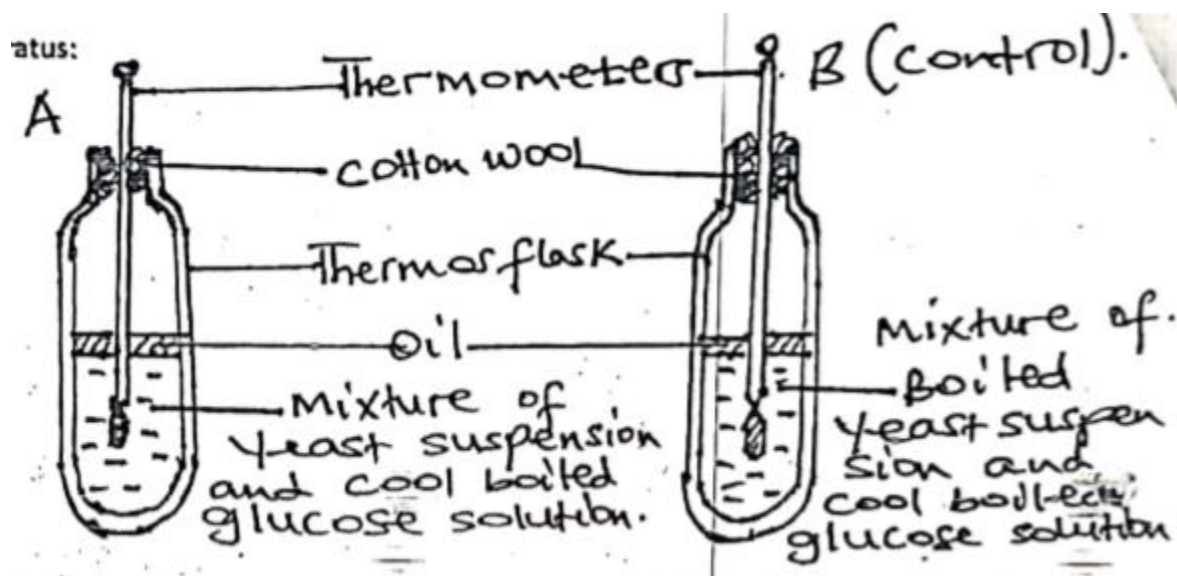 atus:
A
Thermometers
B (control).
cotton wool
Thermos flask
Oil
Mixture of
yeast suspension
and cool boiled
glucose solution.
Mixture of.
Boiled
yeast suspen
sion and
cool boiled
glucose solution